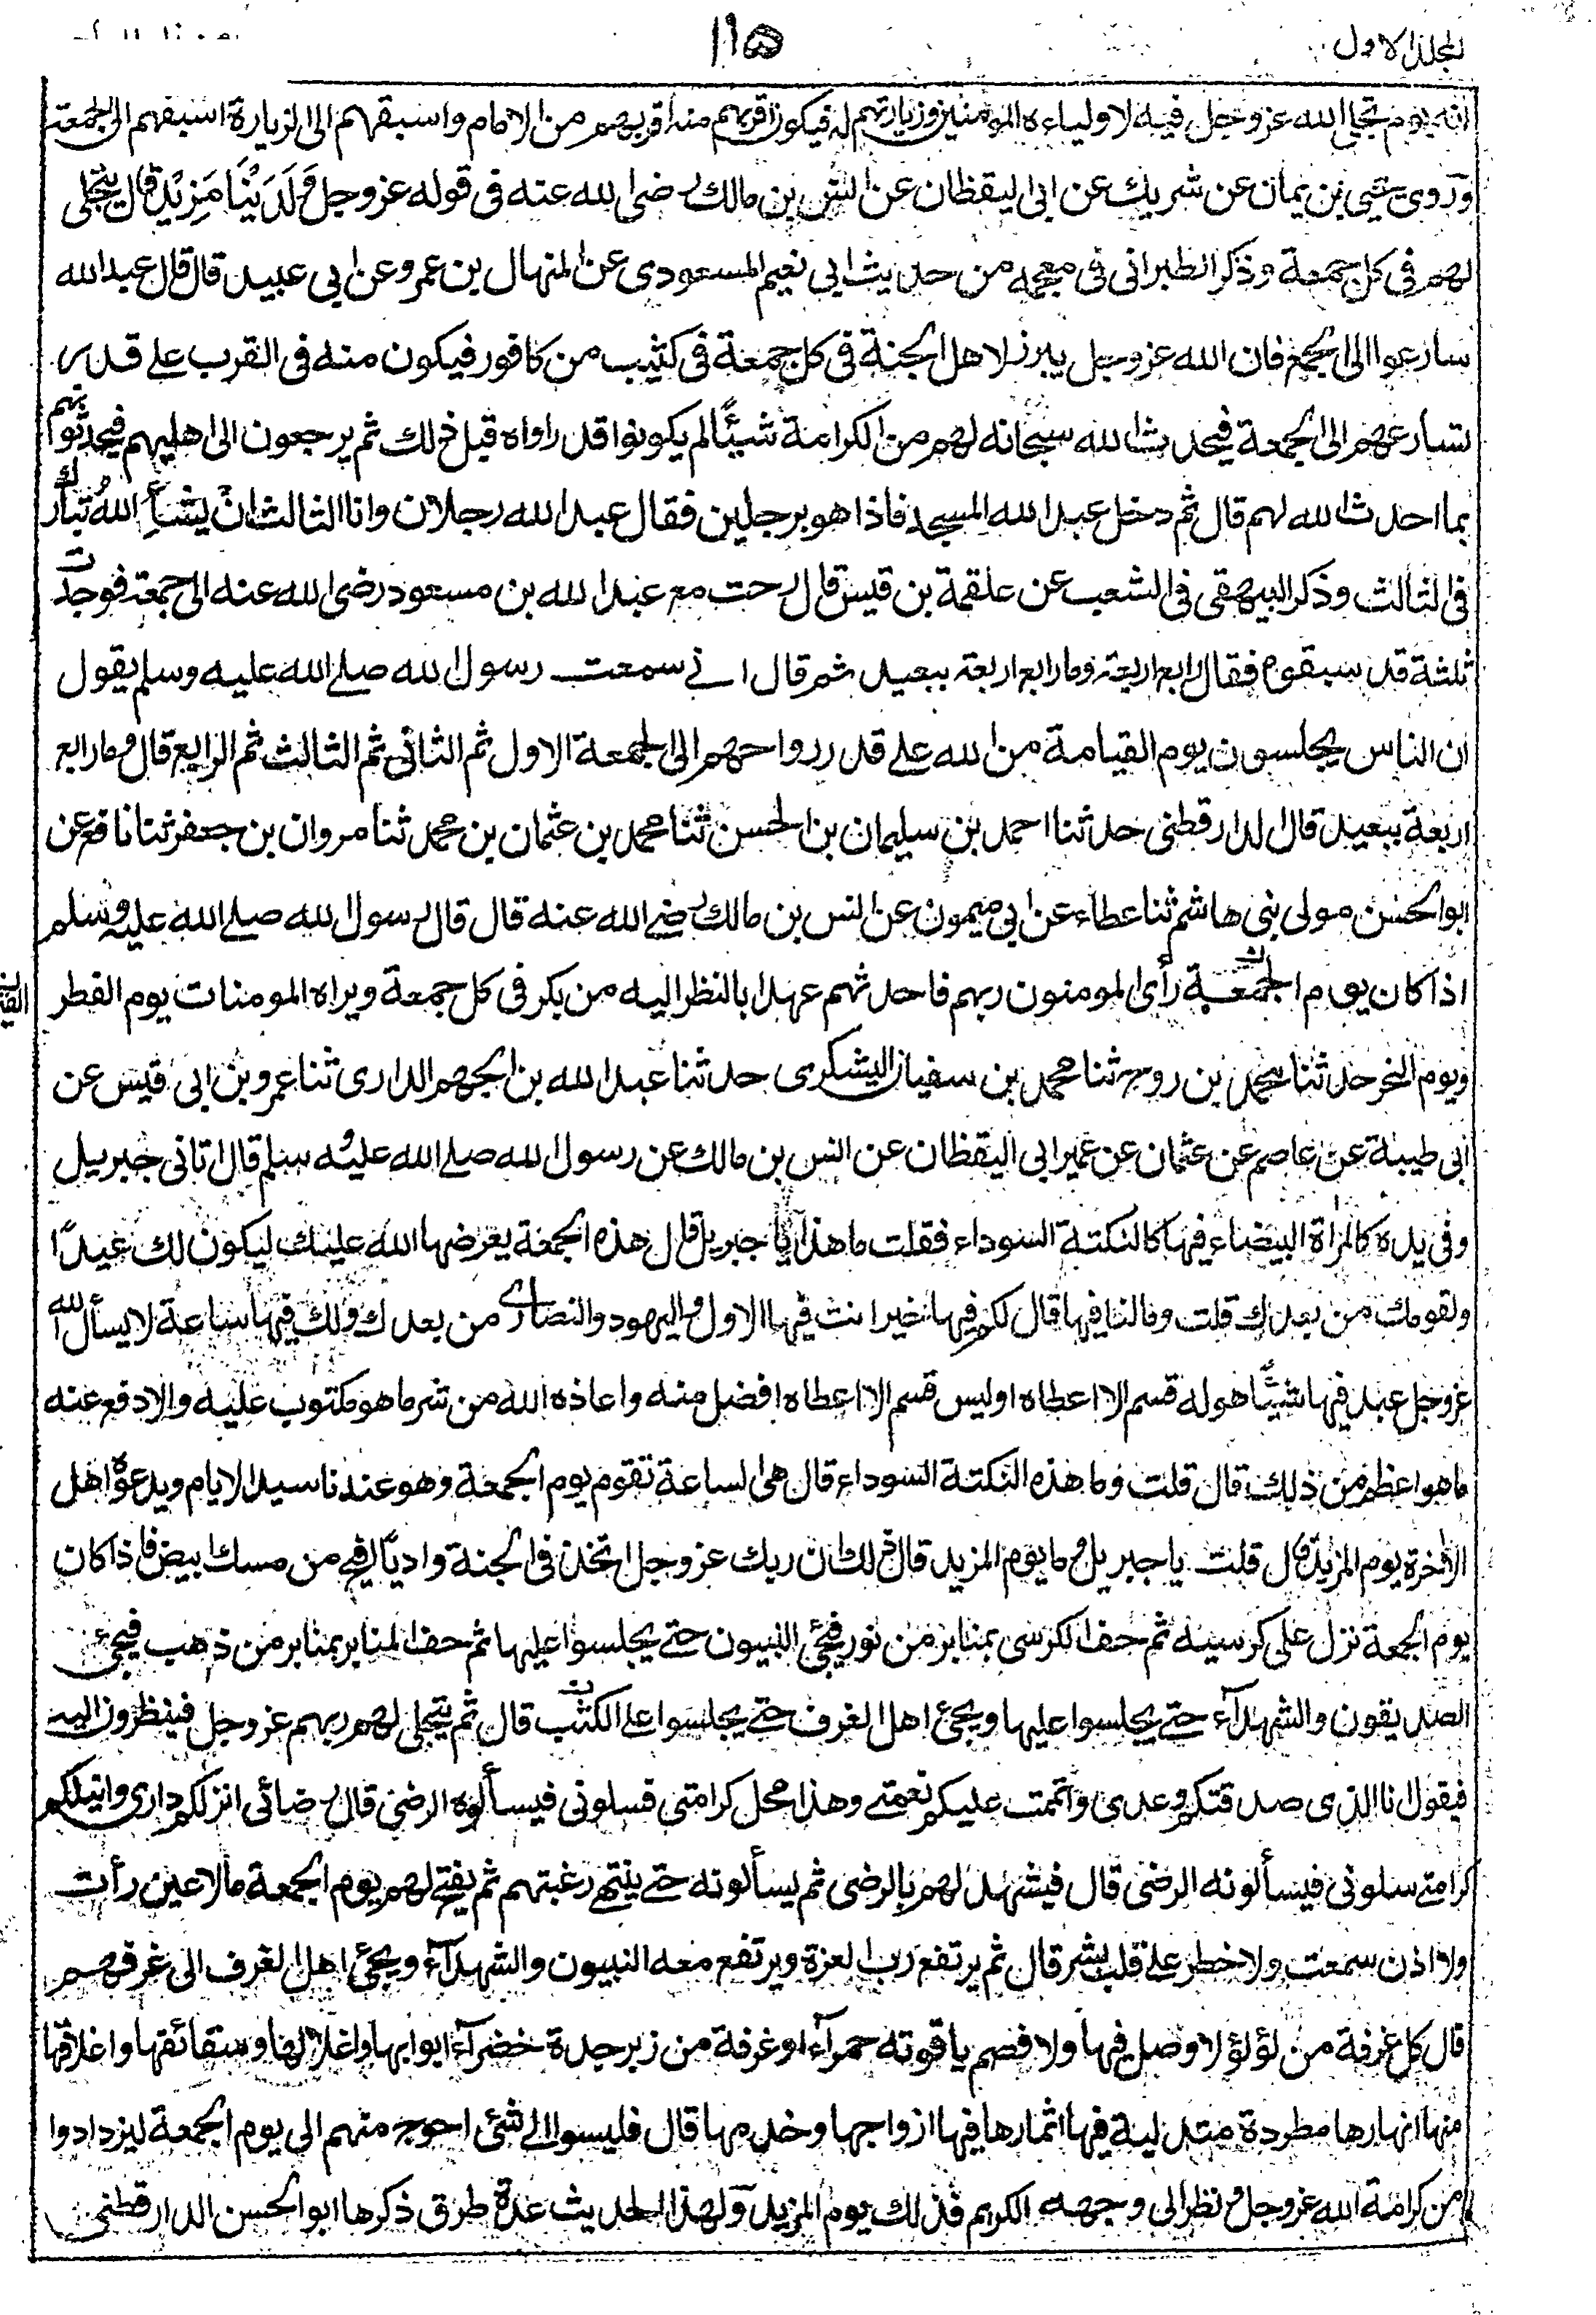 المجلد الاول
١١٥
انه يوم تجلي الله عز وجل فيه لاولياءه المومنين وزيارتهم له فيكون اقربهم منه اقربهم من الامام واسبقهم الى الزيارة اسبقهم الى الجمعة
وروى يحيى بن يمان عن شريك عن ابى اليقظان عن انس بن مالك رضى الله عنه فى قوله عز وجل وَلَدَيْنَا مَزِيْدٌ قال يتجلى
لهم فى كل جمعة وذكر الطبرانى فى معجمه من حديث ابى نعيم المسعودى عن المنهال بن عمرو عن ابى عبيد قال قال عبد الله
سارعوا الى الجمع فان الله عز وجل يبرز لاهل الجنة فى كل جمعة فى كثيب من كافور فيكون منه فى القرب على قدر
تسارعهم الى الجمعة فيحدث الله سبحانه لهم من الكرامة شيئًا لم يكونوا قد راواه قبل ذلك ثم يرجعون الى اهليهم فيحدثونهم
بما احدث الله لهم قال ثم دخل عبد الله المسجد فاذا هو برجلين فقال عبد الله رجلان وانا الثالث انْ يشأِ اللهُ تبارك
فى الثالث وذكر البيهقى فى الشعب عن علقمة بن قيس قال رحت مع عبد الله بن مسعود رضى الله عنه الى جمعة فوجدت
ثلثة قد سبقوه فقال رابع اربعة وما رابع اربعة ببعيد ثم قال انى سمعت رسول الله صلے الله عليه وسلم يقول
ان الناس يجلسون يوم القيامة من الله على قدر رواحهم الى الجمعة الاول ثم الثانى ثم الثالث ثم الرابع قال وما رابع
اربعة ببعيد قال الدارقطنى حدثنا احمد بن سليمان بن الحسن ثنا محمد بن عثمان بن محمد ثنا مروان بن جعفر ثنا نافع عن
ابو الحسن مولى بنى هاشم ثنا عطاء عن ابى ميمون عن انس بن مالك رضے الله عنه قال قال رسول الله صلے الله عليه وسلم
اذا كان يوم الجمعة رأى المومنون ربهم فاحدثهم عهدا بالنظر اليه من بكر فى كل جمعة ويراه المومنات يوم الفطر
ويوم النحر حدثنا محمد بن روح ثنا محمد بن سفيان اليشكرى حدثنا عبد الله بن الجهم الدارى ثنا عمرو بن ابى قيس عن
ابى طيبة عن عاصم عن عثمان عن عمير ابى اليقظان عن انس بن مالك عن رسول الله صلے الله عليه وسلم قال اتانى جبريل
وفى يده كالمرأة البيضاء فيها كالنكتة السوداء فقلت ما هذا يا جبريل قال هذه الجمعة يعرضها الله عليك ليكون لك عيدًا
ولقومك من بعدك قلت وما لنا فيها قال لكم فيها خير انت فيها الاول واليهود والنصارى من بعدك ولك فيها ساعة لا يسأل الله
عز وجل عبد فيها شيئًا هو له قسم الا اعطاه اوليس قسم الا اعطاه افضل منه واعاذه الله من شر ما هو مكتوب عليه والا دفع عنه
ما هو اعظم من ذلك قال قلت وما هذه النكتة السوداء قال هى الساعة تقوم يوم الجمعة وهو عندنا سيد الايام ويدعوه اهل
الاخرة يوم المزيد قال قلت يا جبريل وما يوم المزيد قال ذلك ان ربك عز وجل اتخذ فى الجنة واديًا افيح من مسك ابيض فاذا كان
يوم الجمعة نزل على كرسيه ثم حف الكرسى بمنابر من نور فيجئ النبيون حتے يجلسوا عليها ثم حف المنابر بمنابر من ذهب فيجئ
الصديقون والشهدآء حتے يجلسوا عليها ويجئ اهل الغرف حتے يجلسوا على الكثب قال ثم يتجلى لهم ربهم عز وجل فينظرون اليه
فيقول انا الذى صدقتكم وعدى واتممت عليكم نعمتے وهذا محل كرامتى فسلونى فيسألوه الرضى قال رضائى انزلكم دارى وانيلكم
كرامتے سلونى فيسألونه الرضى قال فيشهد لهم بالرضى ثم يسألونه حتے ينتهے رغبتهم ثم يفتح لهم يوم الجمعة ما لا عين رأت
ولا اذن سمعت ولا خطر على قلب بشر قال ثم يرتفع رب العزة ويرتفع معه النبيون والشهدآء ويجئ اهل الغرف الى غرفهم
قال كل غرفة من لؤلؤ لا وصل فيها ولا فصم ياقوته حمرآء او غرفة من زبرجدة خضرآء ابوابها واغلالها وسقائفها واغلاقها
منها انهارها مطردة متدلية فيها اثمارها فيها ازواجها وخدمها قال فليسوا الى شئ احوج منهم الى يوم الجمعة ليزدادوا
من كرامة الله عز وجل ونظر الى وجهه الكريم فذلك يوم المزيد ولهذا الحديث عدة طرق ذكرها ابو الحسن الدارقطنى